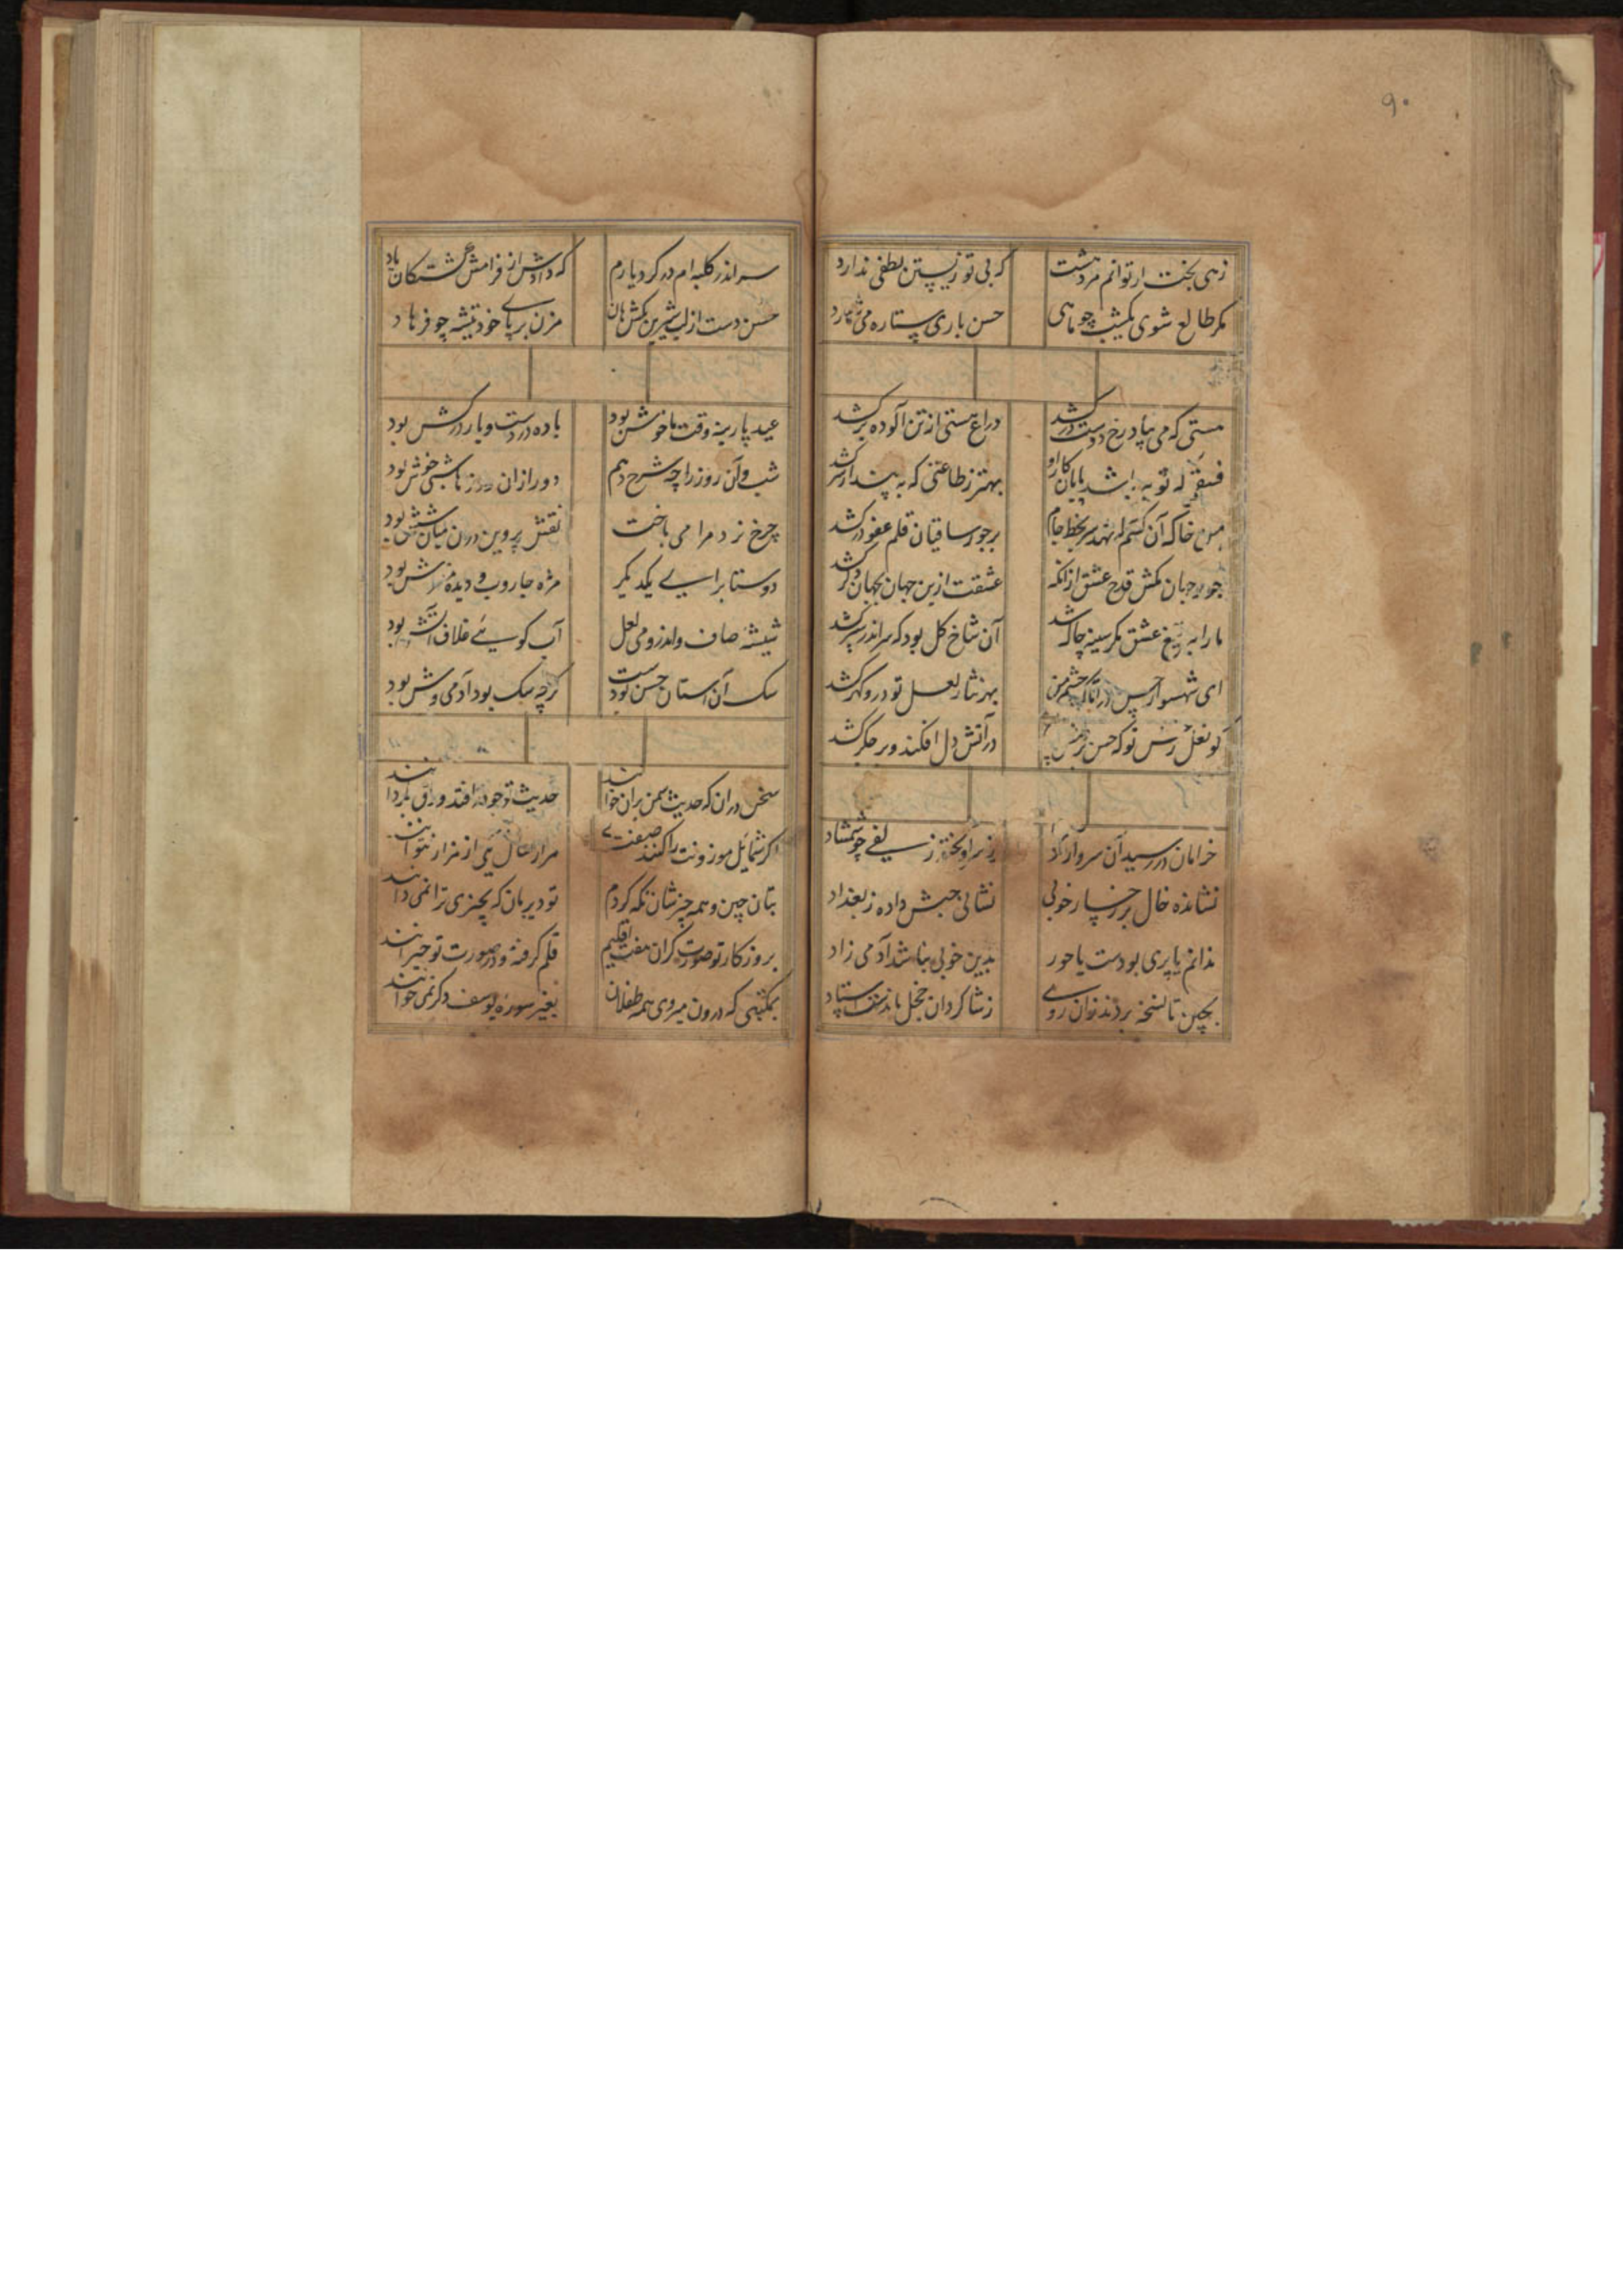 ۹۰
زهی بخت ار توانم مرد پیشت که بی تو زیستن لطفی ندارد
مگر طالع شوی یکشب چو ماهی حسن باری ستاره می شمارد
مستی که می بیاد رخ دوست درکشد دراع هستی از تن آلوده برکشد
بهتر ز طاعتی که به پندار سر کشد
من خاک آن کسم که نهد سر بخط جام بر جور ساقیان قلم عفو درکشد
جور جهان مکش قدح عشق ازانکه عشقت ازین جهان بجهان دگر کشد
ما را به تیغ عشق مگر سینه چاک شد آن شاخ گل بود که سر اندر سپر کشد
ای شهسوار حسن چشم من بهر نثار لعل تو در و گهر کشد
کو نعل رخش تو که حسن در آتش دل افکند و بر جگر کشد
خرامان در رسید آن سرو آزاد ز سر آویخته زلفی چو شمشاد
نشانده خال بر رخسار خوبی نشانی حبش داده ز بغداد
ندانم یا پری بودست یا حور بدین خوبی نباشد آدمی زاد
بچین تا نسخه بردند زان روی ز شاگردان خجل ماندست استاد
سر اندر کلبه ام در کرد یارم که دادش از فرامش گشتگان یاد
حسن دست از لب شیرین مکش هان مزن بر پای خود تیشه چو فرهاد
عید پارینه وقت ما خوش بود باده در دست و یار درکش بود
شب و آن روز را چه شرح دهم دور ازان روز ما شبی خوش بود
چرخ نرد مرا می باخت نقش پروین در آن میان شش بود
دوستا برای یکدیگر مژه جاروب و دیده مفرش بود
شیشهٔ صاف و اندرو می لعل آب گویی غلاف آتش بود
سگ آن آستان حسن بودست گرچه سگ بود آدمی وش بود
سخن دران که حدیث سمن بران خوانند حدیث تو چو در افتد ورق بگردانند
اگر شمایل موزونت را کنند صفت
بتان چین و همه چیزشان نگه کردم تو دیر مان که بچیزی ترا نمی دانند
بروزگار تو صورت گران هفت اقلیم قلم گرفته و در صورت تو حیرانند
بمکتبی که درون میروی همه طفلان بغیر سورهٔ یوسف دگر نمی خوانند